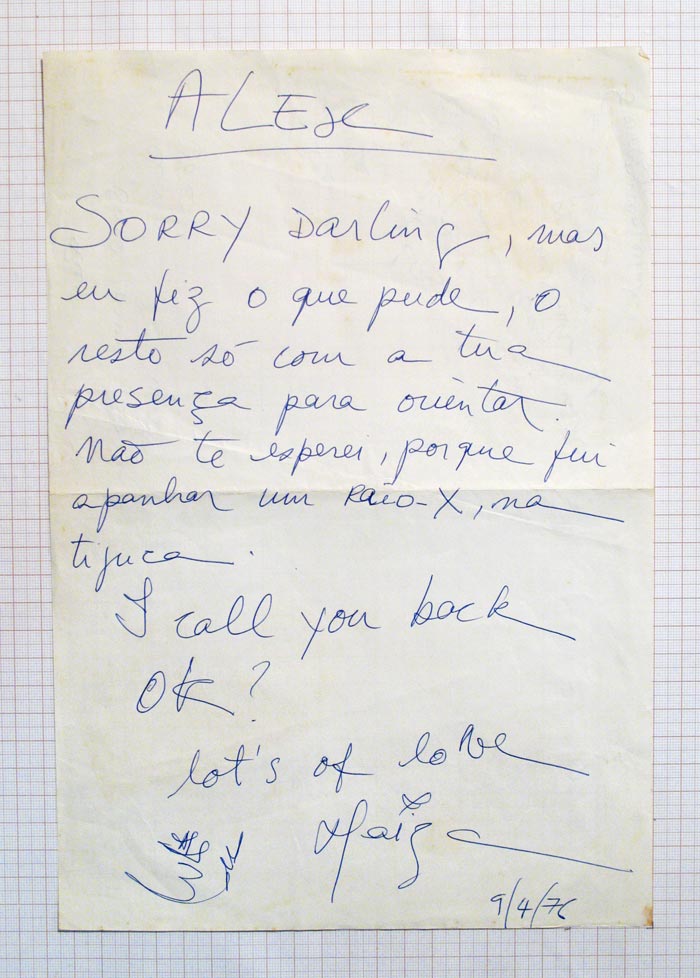 ALEX
SORRY Darling, mas
eu fiz o que pude, o
resto só com a tua
presença para orientar.
não te esperei, porque fui
apanhar um Raio-X, na
tijuca.
I call you back
OK?
lot's of love
Maiza
9/4/76